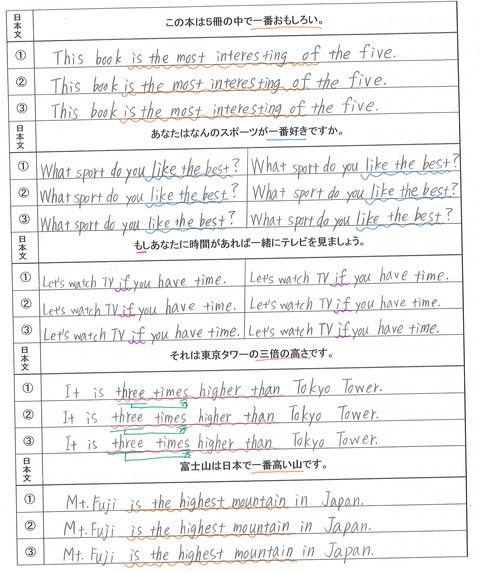 日本文 この本は5冊の中で一番おもしろい。
① This book is the most interesting of the five.
② This book is the most interesting of the five.
③ This book is the most interesting of the five.
日本文 あなたはなんのスポーツが一番好きですか。
① What sport do you like the best? What sport do you like the best?
② What sport do you like the best? What sport do you like the best?
③ What sport do you like the best? What sport do you like the best?
日本文 もしあなたに時間があれば一緒にテレビを見ましょう。
① Let's watch TV if you have time. Let's watch TV if you have time.
② Let's watch TV if you have time. Let's watch TV if you have time.
③ Let's watch TV if you have time. Let's watch TV if you have time.
日本文 それは東京タワーの三倍の高さです。
① It is three times higher than Tokyo Tower.
② It is three times higher than Tokyo Tower.
③ It is three times higher than Tokyo Tower.
日本文 富士山は日本で一番高い山です。
① Mt. Fuji is the highest mountain in Japan.
② Mt. Fuji is the highest mountain in Japan.
③ Mt. Fuji is the highest mountain in Japan.